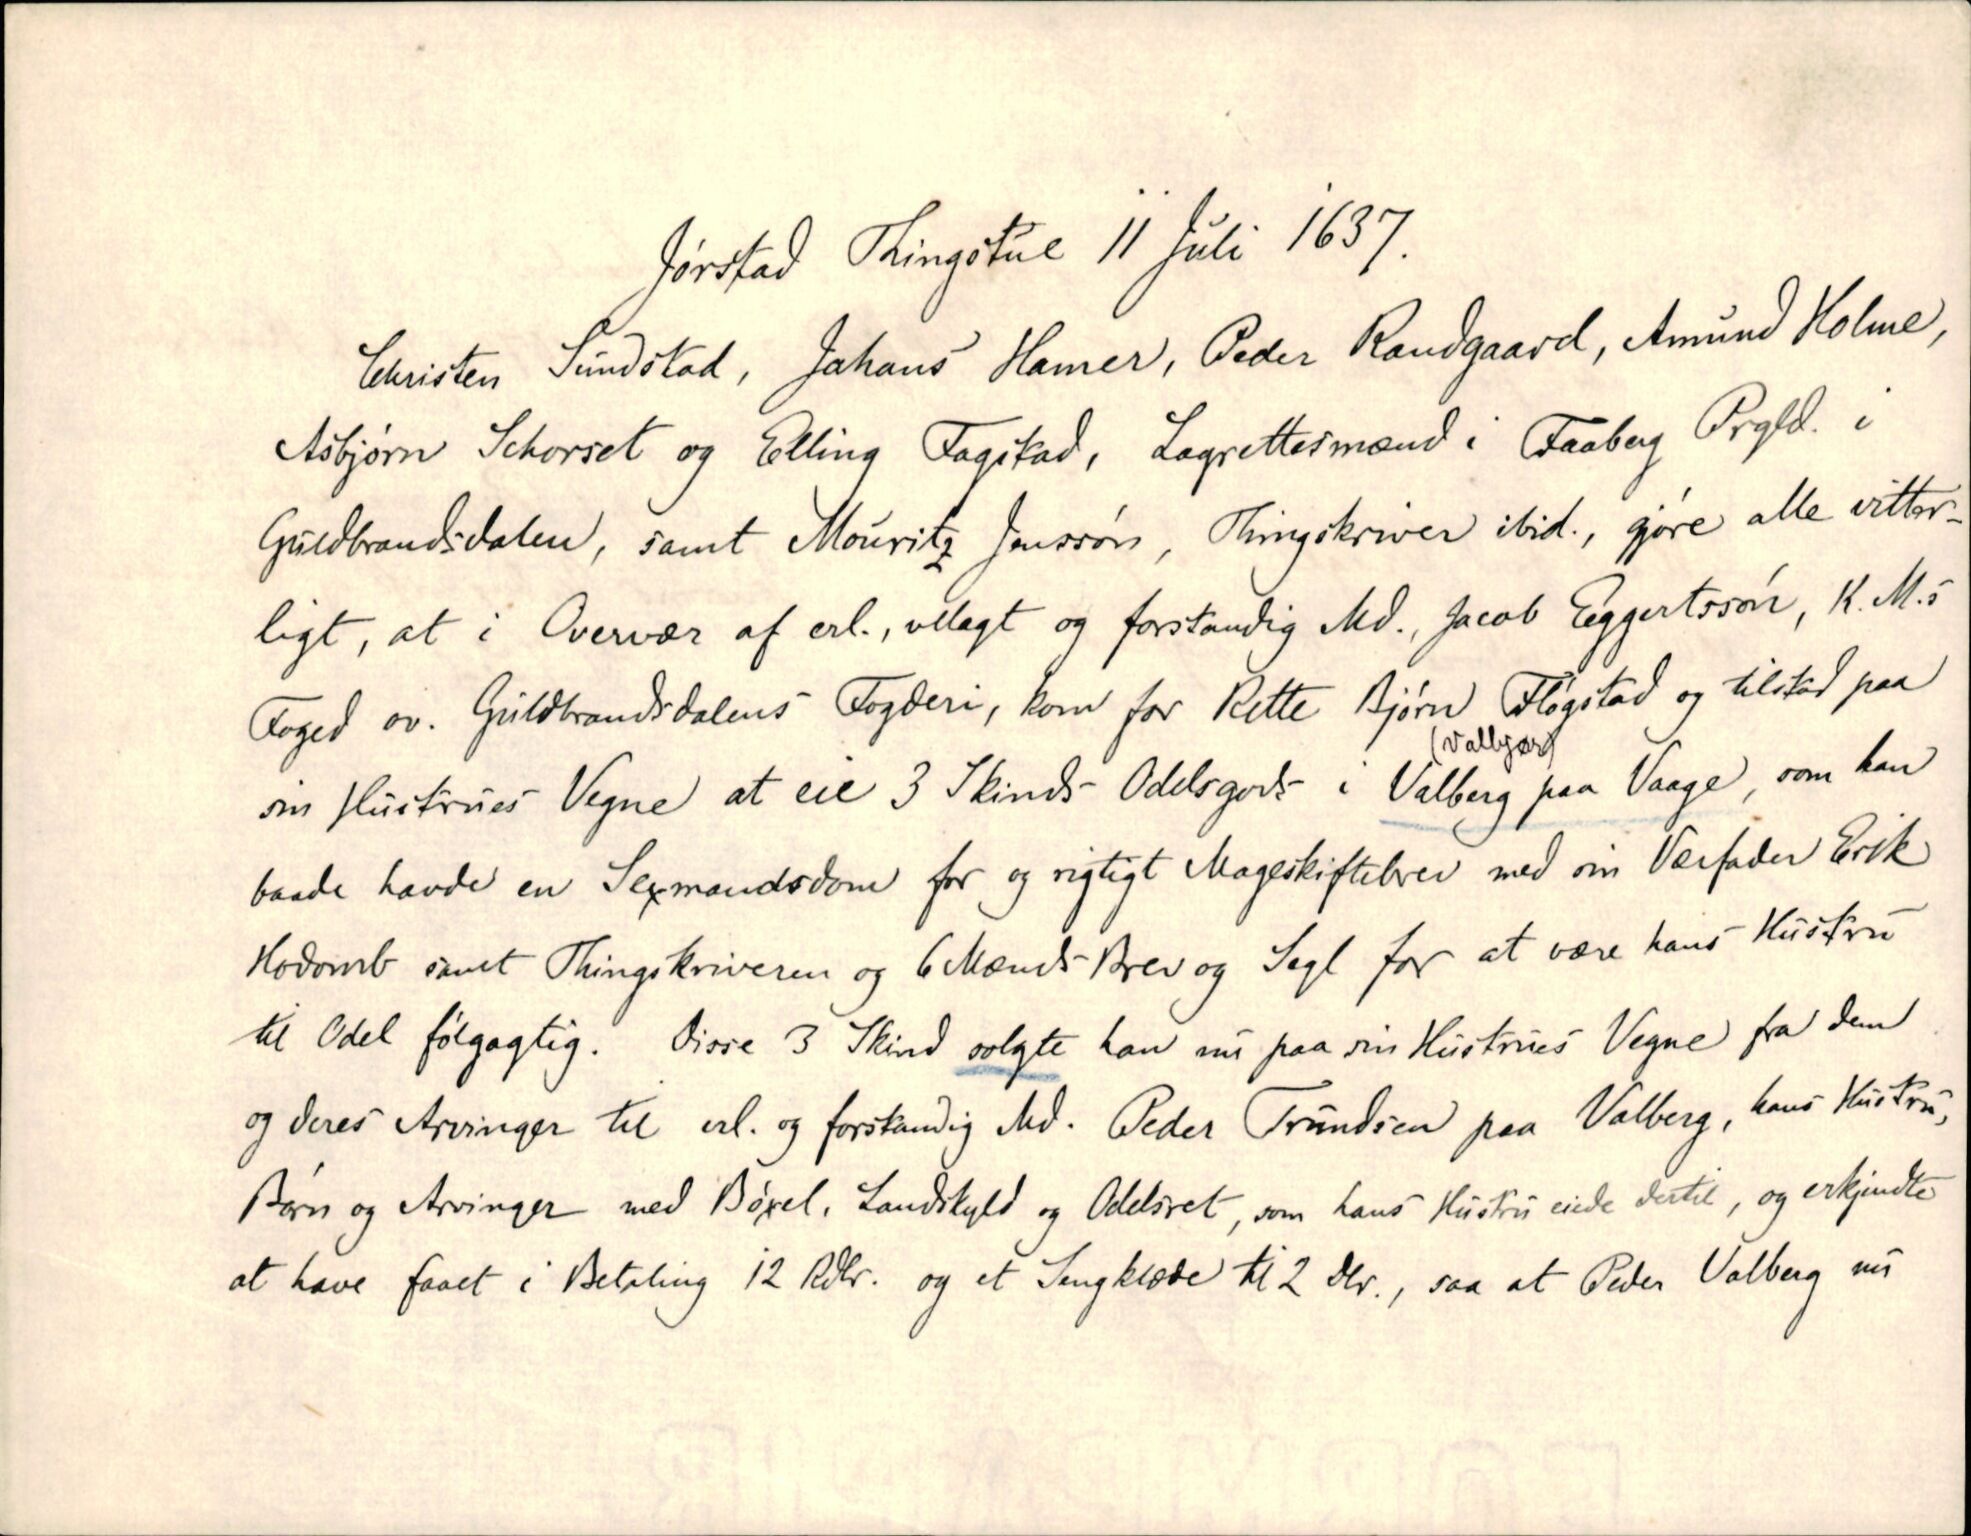 Jørstad Thingstue 11 Juli 1637.
Christen Sundstad, Johans Hamer, Peder Randgaard, Amund Holme,
Asbjørn Schorset og Elling Fagstad, Lagrettesmænd i Faaberg Prgld. i
Guldbrandsdalen, samt Mouritz Jenssøn, Thingskriver ibid., gjøre alle vitter-
ligt, at i Overvær af erl., vellagt og forstandig Md., Jacob Eggertssøn, K. M.s
Foged ov. Guldbrandsdalens Fogderi, kom for Rette Bjørn Fløgstad og tilstod paa
(Valbjør)
sin Hustrues Vegne at eie 3 Skinds Odelsgods i Valberg paa Vaage, som han
baade havde en Sexmandsdom for og rigtigt Mageskiftebrev med sin Værfader Erik
Hodomb samt Thingskriveren og 6 Mænds Brev og Segl for at være hans Hustru
til Odel følgagtig. Disse 3 Skind solgte han nu paa sin Hustrues Vegne fra dem
og deres Arvinger til erl. og forstandig Md. Peder Trundsen paa Valberg, hans Hustru,
Børn og Arvinger med Bøxel, Landskyld og Odelsret, som hans Hustru eiede dertil, og erkjendte
at have faaet i Betaling 12 Rdlr. og et Sengklæde til 2 Dlr., saa at Peder Valberg nu